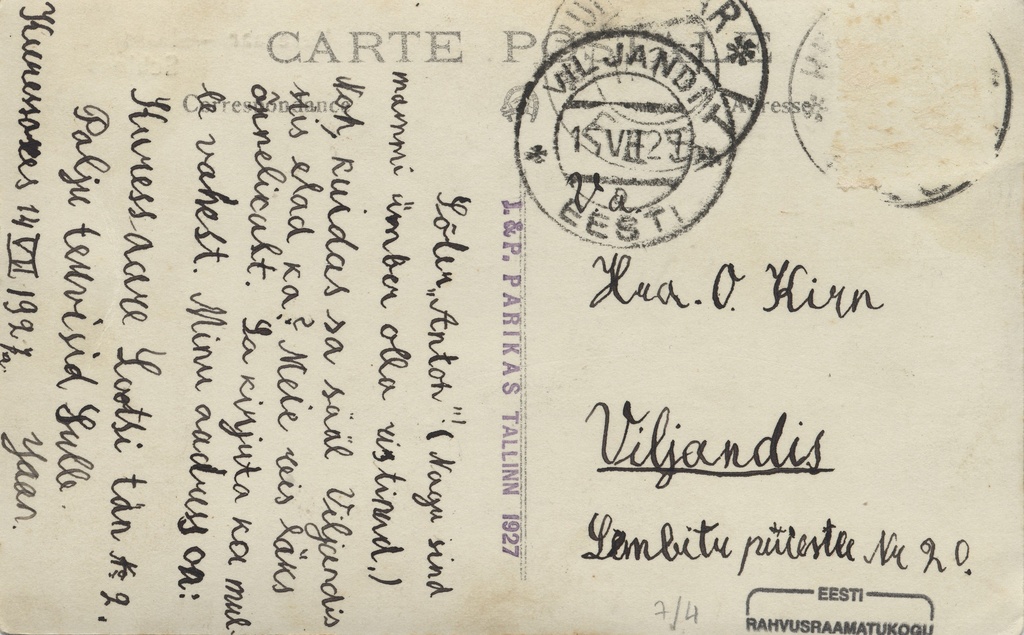 CARTE POSTALE
Correspondance
Adresse
VILJANDI
15 VII 27
EESTI
Sõber „Antoh"! (Nagu sind
mammi ümber olla ristinud.)
Noh, kuidas sa sääl Viljandis
siis elad ka? Meie reis läks
õnnelicult. Sa kirjuta ka mul-
le vahest. Minu aadress on:
Kuressaare Lootsi tän № 2.
Palju tervisid Sulle
Jaan.
Kuressaares 14 VII 1927a.
J. & P. PARIKAS TALLINN 1927
V.a.
Hra. O. Kirn
Viljandis
Lembitu puiestee Nr 20.
7/4
EESTI
RAHVUSRAAMATUKOGU